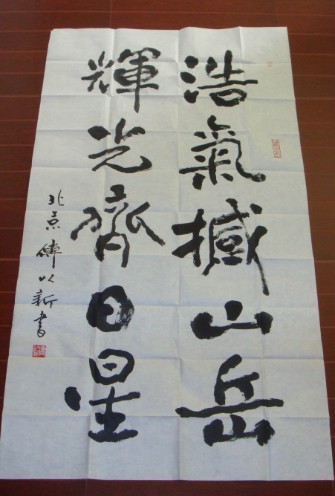 浩氣撼山岳
輝光齊日星
北京傅以新書